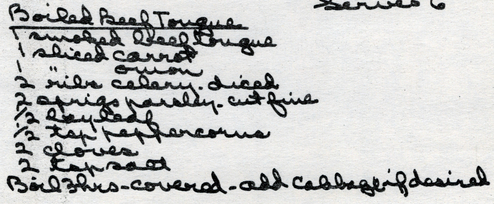 Boiled Beef Tongue
Serves 6
1 smoked beef tongue
1 sliced carrot
1 " onion
2 ribs celery - diced
2 sprigs parsley - cut fine
1/2 bay leaf
1/2 tsp peppercorns
2 cloves
2 tsp salt
Boil 3 hrs - covered - add cabbage if desired